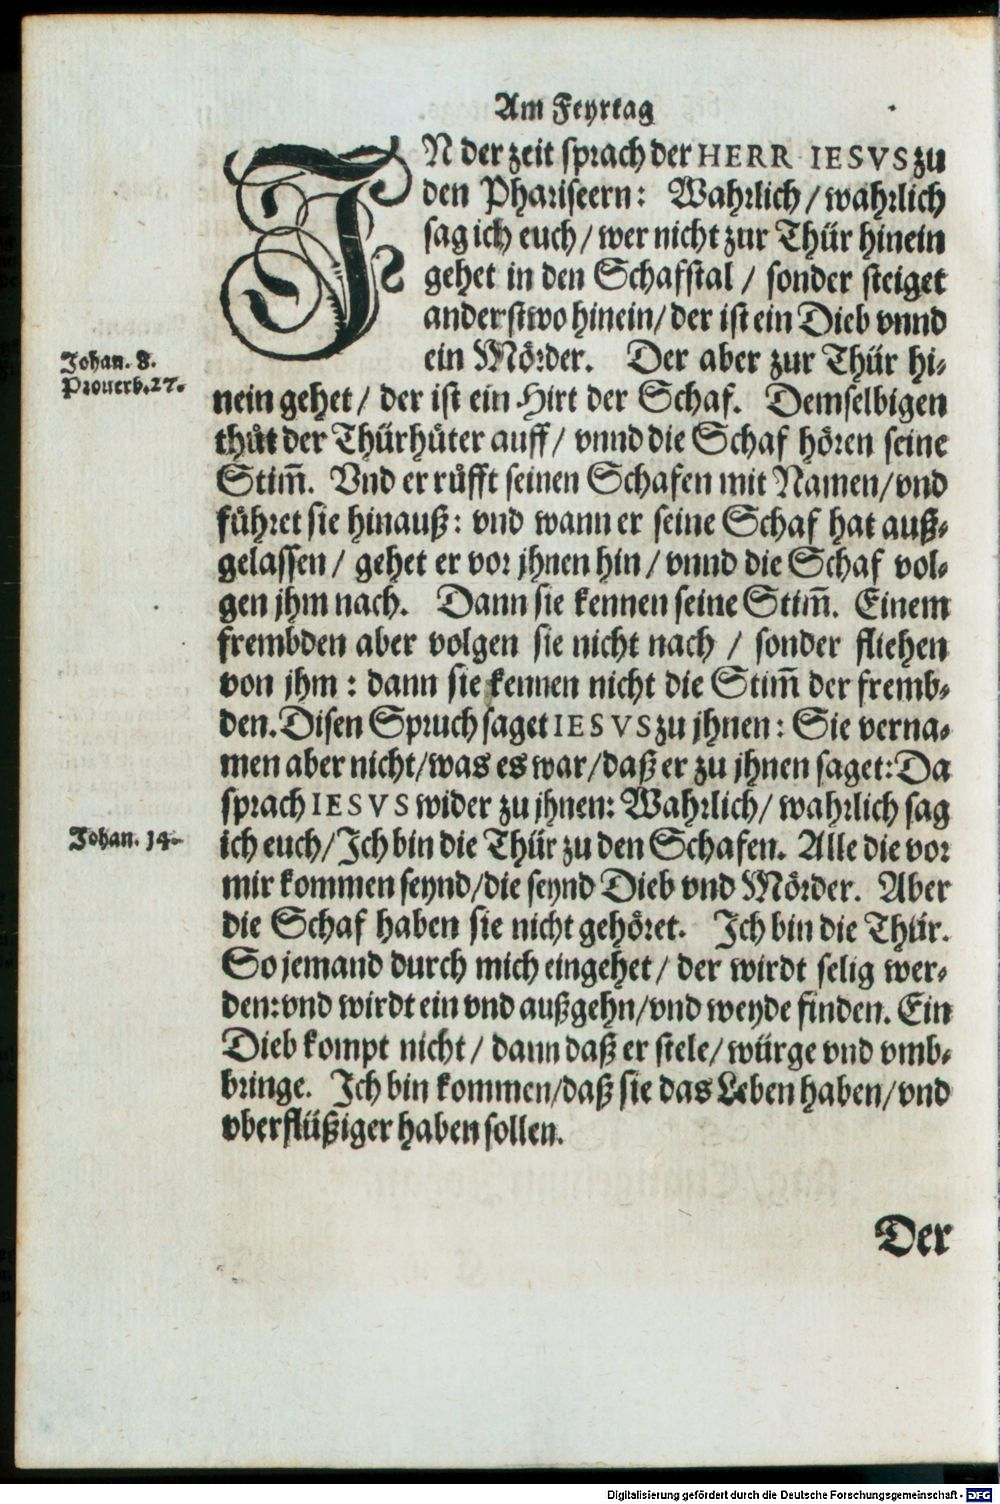 Am Feyrtag
IN der zeit sprach der HERR IESVS zu
den Phariseern: Wahrlich / wahrlich
sag ich euch / wer nicht zur Thür hinein
gehet in den Schafstal / sonder steiget
anderstwo hinein / der ist ein Dieb vnnd
ein Mörder. Der aber zur Thür hi-
Johan. 8.
Prouerb. 27.
nein gehet / der ist ein Hirt der Schaf. Demselbigen
thůt der Thürhüter auff / vnnd die Schaf hören seine
Stim̃. Vnd er rüfft seinen Schafen mit Namen / vnd
führet sie hinauß: vnd wann er seine Schaf hat auß-
gelassen / gehet er vor jhnen hin / vnnd die Schaf vol-
gen jhm nach. Dann sie kennen seine Stim̃. Einem
frembden aber volgen sie nicht nach / sonder fliehen
von jhm: dann sie kennen nicht die Stim̃ der fremb-
den. Disen Spruch saget IESVS zu jhnen: Sie verna-
men aber nicht / was es war / daß er zu jhnen saget: Da
sprach IESVS wider zu jhnen: Wahrlich / wahrlich sag
Johan. 14.
ich euch / Ich bin die Thür zu den Schafen. Alle die vor
mir kommen seynd / die seynd Dieb vnd Mörder. Aber
die Schaf haben sie nicht gehöret. Ich bin die Thür.
So jemand durch mich eingehet / der wirdt selig wer-
den: vnd wirdt ein vnd außgehn / vnd weyde finden. Ein
Dieb kompt nicht / dann daß er stele / würge vnd vmb-
bringe. Ich bin kommen / daß sie das Leben haben / vnd
vberflüßiger haben sollen.
Der
Digitalisierung gefördert durch die Deutsche Forschungsgemeinschaft - DFG